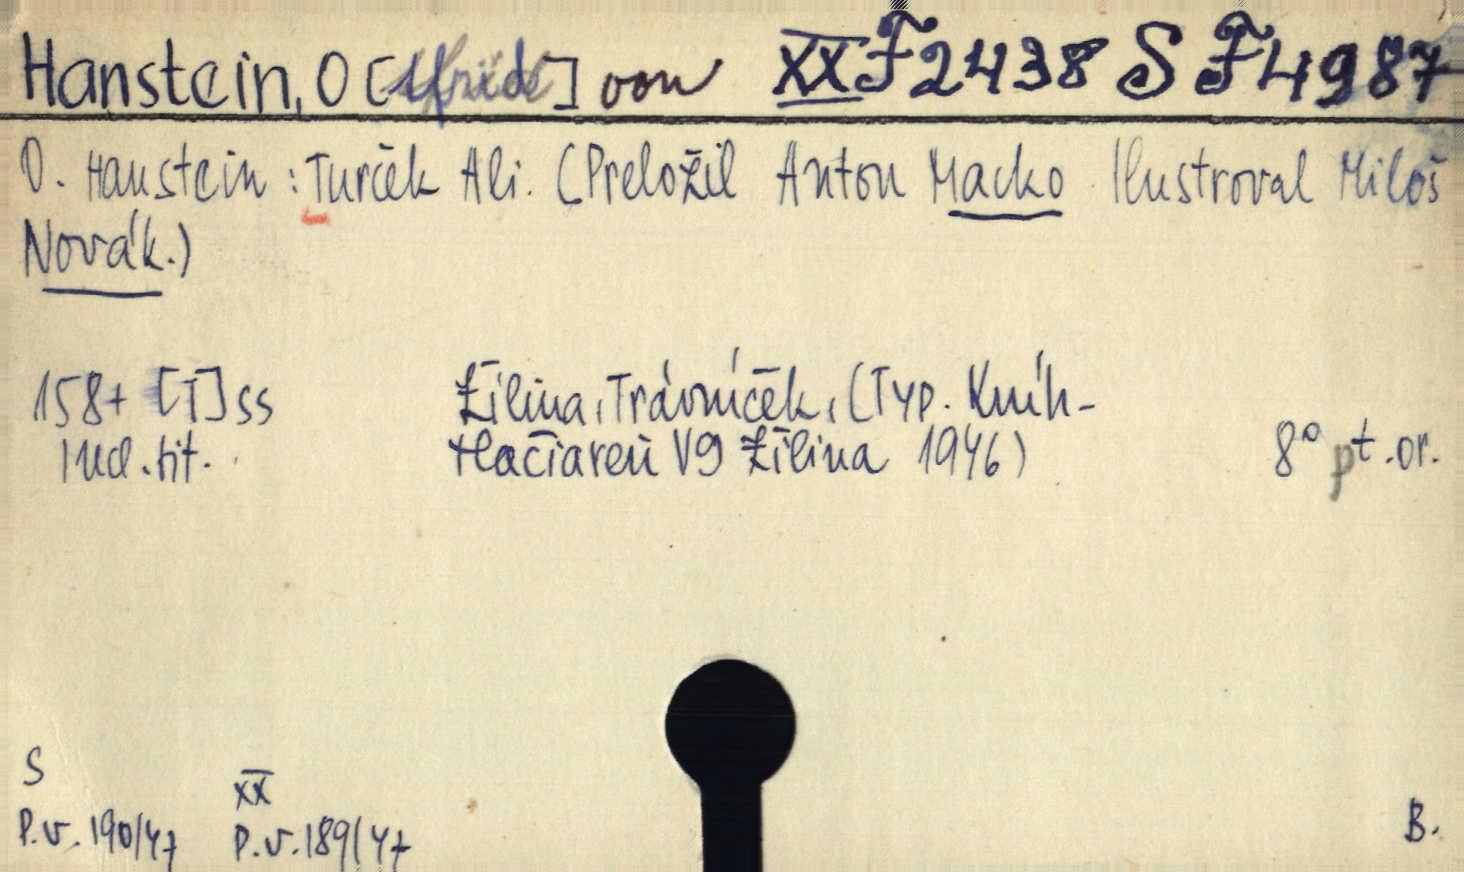 Hanstein, O[tfrid] von XX F 2438 S F 4987
O. Hanstein: Turček Ali. (Preložil Anton Macko. Ilustroval Miloš
Novák.)
158 + [I] ss Žilina, Trávníček, (Typ. Kníh-
Incl. tit. tlačiareň V9 Žilina 1946) 8° pt. or.
S XX
P.v. 190/47 P.v. 189/47 B.